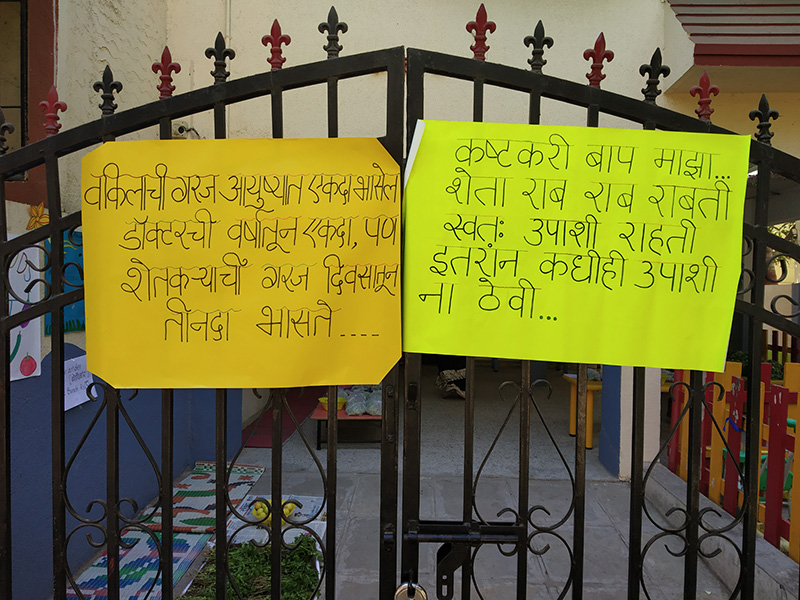 वकिलाची गरज आयुष्यात एकदा भासेल
डॉक्टरची वर्षातून एकदा, पण
शेतकऱ्याची गरज दिवसातून
तीनदा भासते ----
कष्टकरी बाप माझा...
शेता राब राब राबती
स्वतः उपाशी राहती
इतरांन कधीही उपाशी
ना ठेवी...